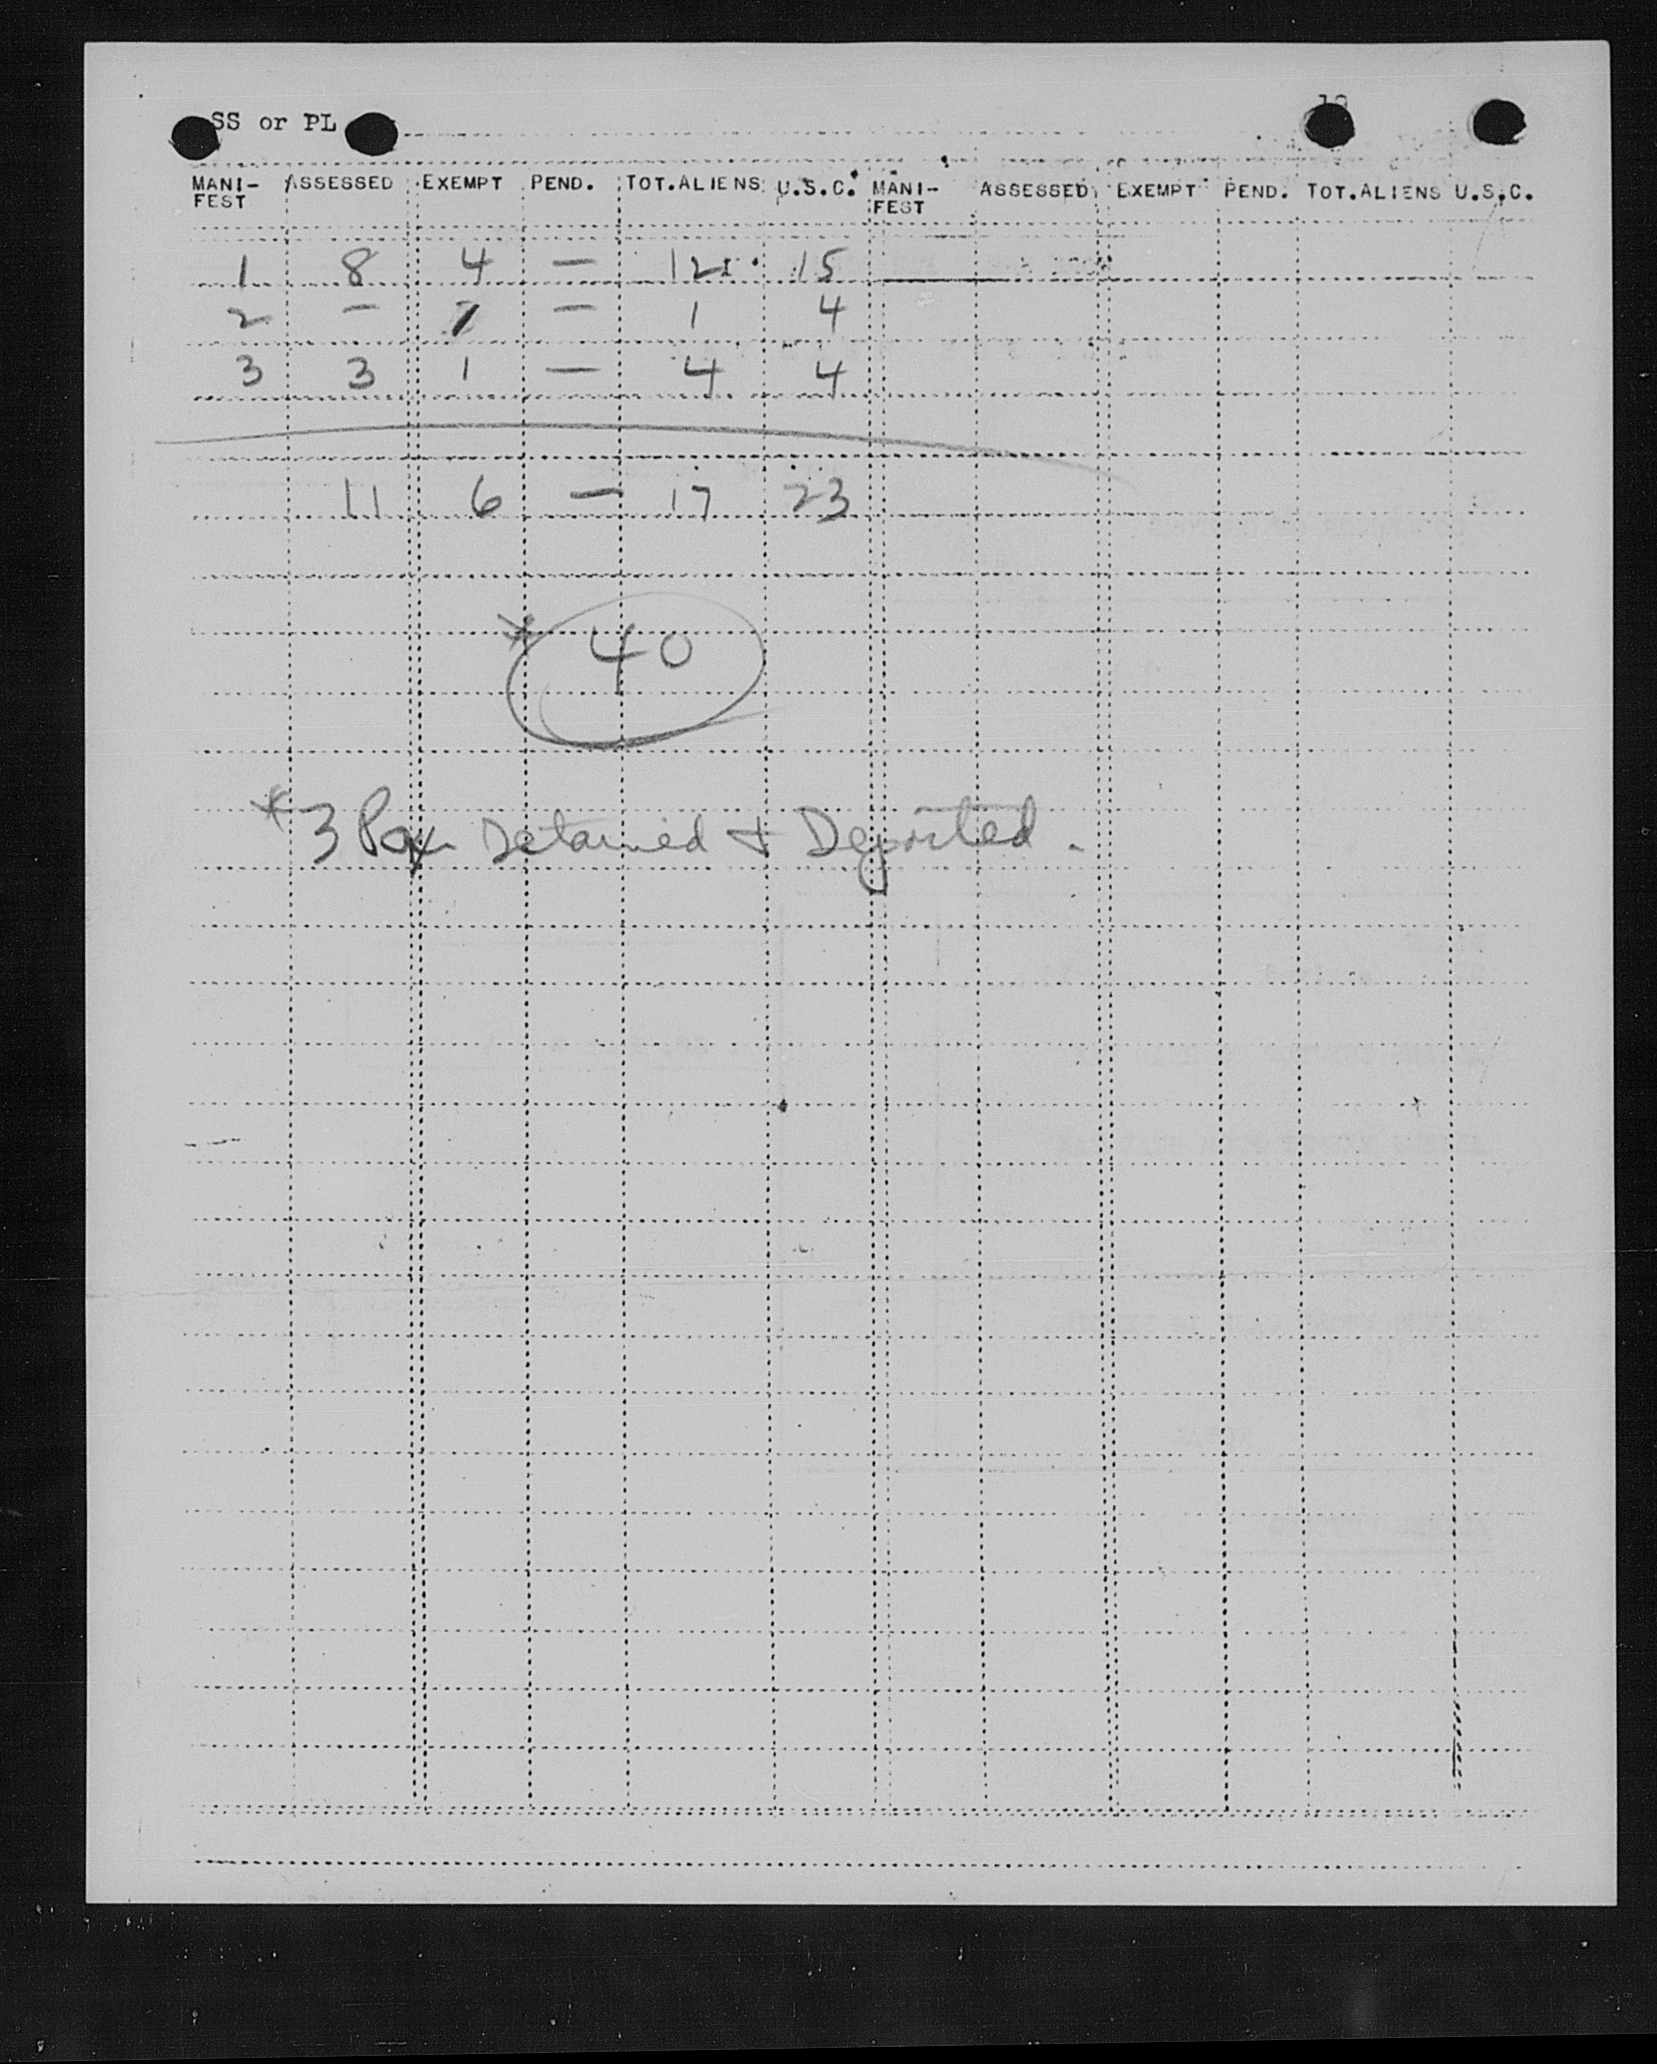 SS or PL 19
MANI- ASSESSED EXEMPT PEND. TOT.ALIENS U.S.C. MANI- ASSESSED EXEMPT PEND. TOT.ALIENS U.S.C.
FEST FEST
1 8 4 — 12 15
2 — 1 — 1 4
3 3 1 — 4 4
11 6 — 17 23
* 40
* 3 Pax Detained + Deported.